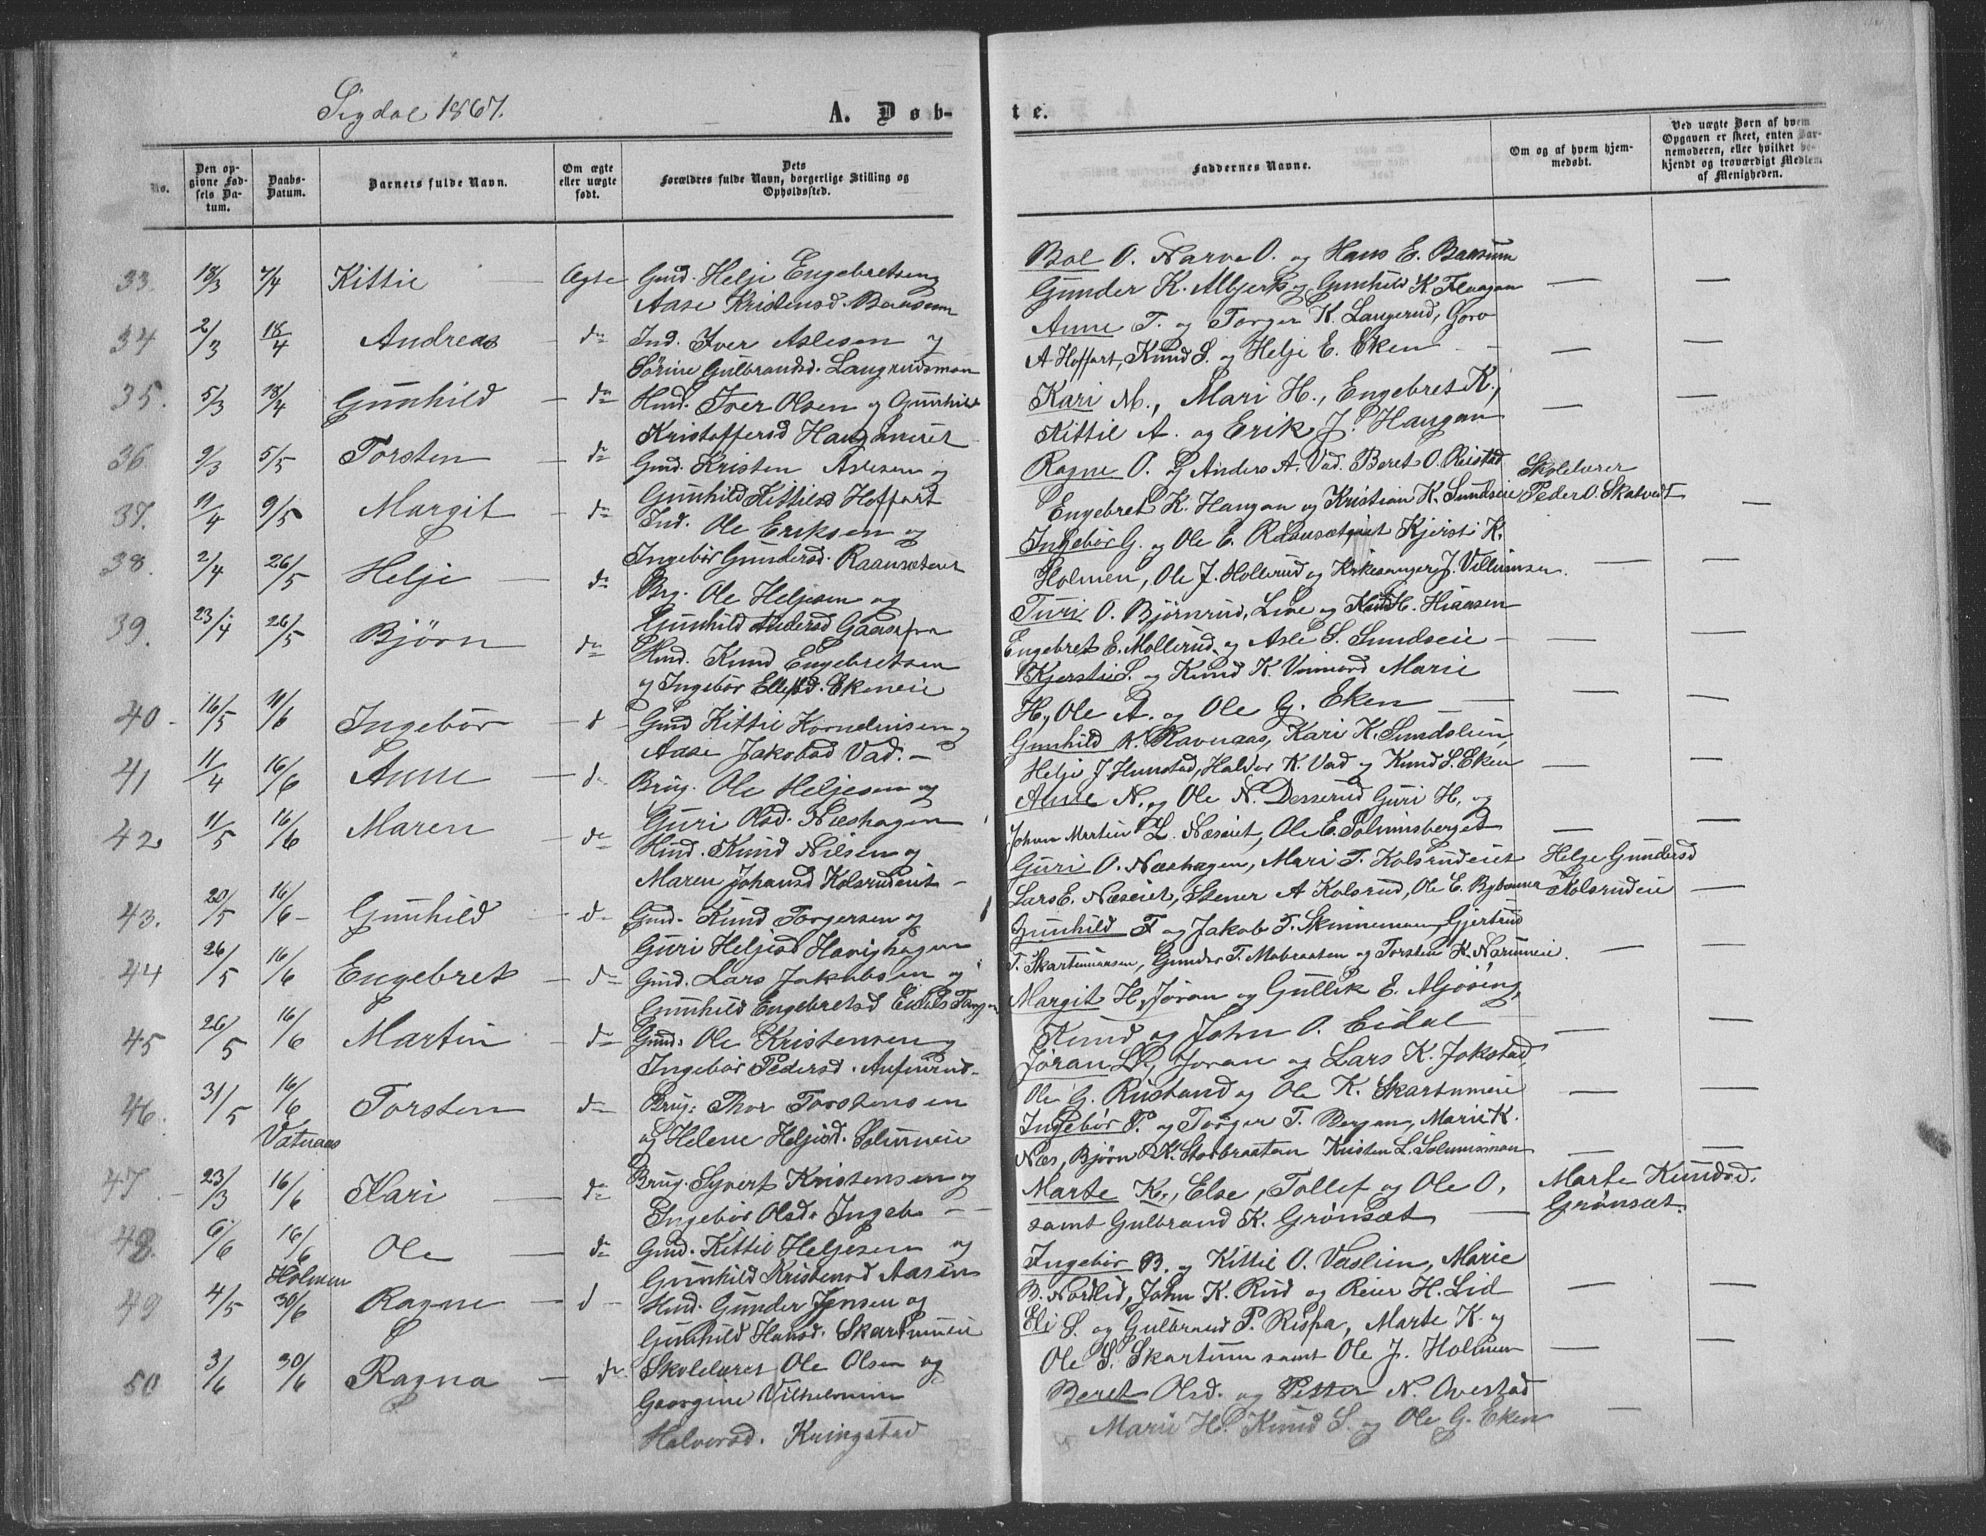 Sigdal 1867.
A. Døb- te.
No.
Den opgivne Fødsels Datum.
Daabs-Datum.
Barnets fulde Navn.
Om ægte eller uægte født.
Dets Forældres fulde Navn, borgerlige Stilling og Opholdssted.
Faddernes Navne.
Om og af hvem hjemmedøbt.
Ved uægte Børn af hvem Opgaven er skeet, enten Barnemoderen, eller hvilket bekjendt og troværdigt Medlem af Menigheden.
33. 18/3 7/4 Kittil — Ægte Gmd. Helje Engebretsen og
Aase Kristensd. Baasum
Bol O. Narve O. og Hans E. Baasum
Gunder K. og Gunhild K. Flaagan — —
34 2/3 18/4 Andreas — do Ind. Iver Aslesen og
Sørine Gulbrandsd. Langrudsmon
Anne T. og Torger K. Langerud, Goro
A Hoffart, Knud S. og Helje E. Eken — — —
35. 5/3 28/4 Gunhild — do Hmd. Iver Olsen og Gunhild
Kristoffersd Hauganeiet
Kari M., Mari H., Engebret K.,
Kittil A. og Erik J. Haugan — —
36 9/3 5/5 Torsten — do Gmd. Kristen Aslesen og
Gunhild Kittilsd Hoffart
Ragne O. og Anders A. Vad. Beret O. Reistad
Engebret K. Haugan og Kristian K. Sundseie
Skolelærer
Peder O. Skatvedt —
37. 11/4 9/5 Margit — do Ind. Ole Eriksen og
Ingebør Gundersd. Raaensæteiet
Ingebør G. og Ole E. Kjersti K.
Holmen, Ole J. Hollerud og Kirkesanger J. Villumsen. — —
38. 2/4 26/5 Helje — do Brg. Ole Heljesen og
Gunhild Andersd
Turi O. Bjørnrud, Live og H. Hiaasen
Engebret E. Mollerud og Asle S. Sundseie — — —
39. 23/4 26/5 Bjørn do Hmd. Knud Engebretsen
og Ingebør Ellefsd. Ekeneie
Kjersti S. og Knud K. Marie
H, Ole A. og Ole G. Eken — — —
40 - 16/5 11/6 Ingebør — d Gmd Kittil Korneliusen og
Aase Jakobsd Vad. —
Gunhild K. Ravnaas, Kari K. Sundslien,
Helje J Hunstad, Halvor K. Vad og Knud S. Eken — —
41 11/4 16/6 Anne — d Brug. Ole Heljesen og
Guri Olsd. Næshagen
Anne N. og Ole N. Desserud Guri H. og
Johan Martin L. Næseiet, Ole E. Solumsberget — —
42. 11/5 16/6 Maren — do Hmd. Knud Nilsen og
Maren Johansd Kolsrudeiet —
Guri O. Næshagen, Mari T. Kolsrudeiet
Lars E. Næseiet, Stener A Kolsrud, Ole E.
Helge Gundersd
Kolsrudeie —
43. 20/5 16/6 — Gunhild — d Gmd. Knud Torgersen og
Guri Heljesd Havighagen
Gunhild T og Jakob T. Skinneman, Gjertrud
T. Gunder T. Mobraaten og Torsten K. — —
44 26/5 16/6 Engebret — do Gmd. Lars Jakobsen og
Gunhild Engebretsd
Margit H, Jøran og Gullik E. Mjøsing,
Knud og John O. Eidal — —
45 26/5 16/6 Martin — do Gmd. Ole Kristensen og
Ingebør Pedersd.
Jøran L., Joran og Lars K. Jokstad,
Ole G. Rustand og Ole K. Skartumeie — —
46. 31/5 16/6 Torsten — do Brug: Thor Torstensen
og Helene Heljesd. Solumeie
Vatnaas
Ingebør T. og Torger T. Bergan, Marie K.
Næs, Bjørn K. Storbraaten Kristen L. Solumsmon — —
47. - 23/3 16/6 Kari — do Brug. Syvert Kristensen og
Ingebør Olsd. Ingeb — —
Marte K., Else, Tollef og Ole O,
samt Gulbrand K. Grønsæt —
Marte Knudsd.
Grønsæt.
48 6/6 16/6 Ole — do Gmd. Kittil Heljesen og
Gunhild Kristensd Aasen
Holmen
Ingebør B. og Kittil O. Vaslien, Marie
B. Nordlid, John K. Rud og Reier H. Lid — —
49 4/5 30/6 Ragne — d — Hmd. Gunder Jensen og
Gunhild Hansd. Skartumeie
Eli S. og Gulbrand P. Rispa, Marte K. og
Ole S. Skartum samt Ole J. Holmen — —
50 3/6 30/6 Ragna — do Skolelærer Ole Olsen og
Georgine Vilhelmine
Halvorsd. Kringstad
Beret Olsd. og Petter N. Ovestad
Marie H. Knud S. og Ole G. Eken —